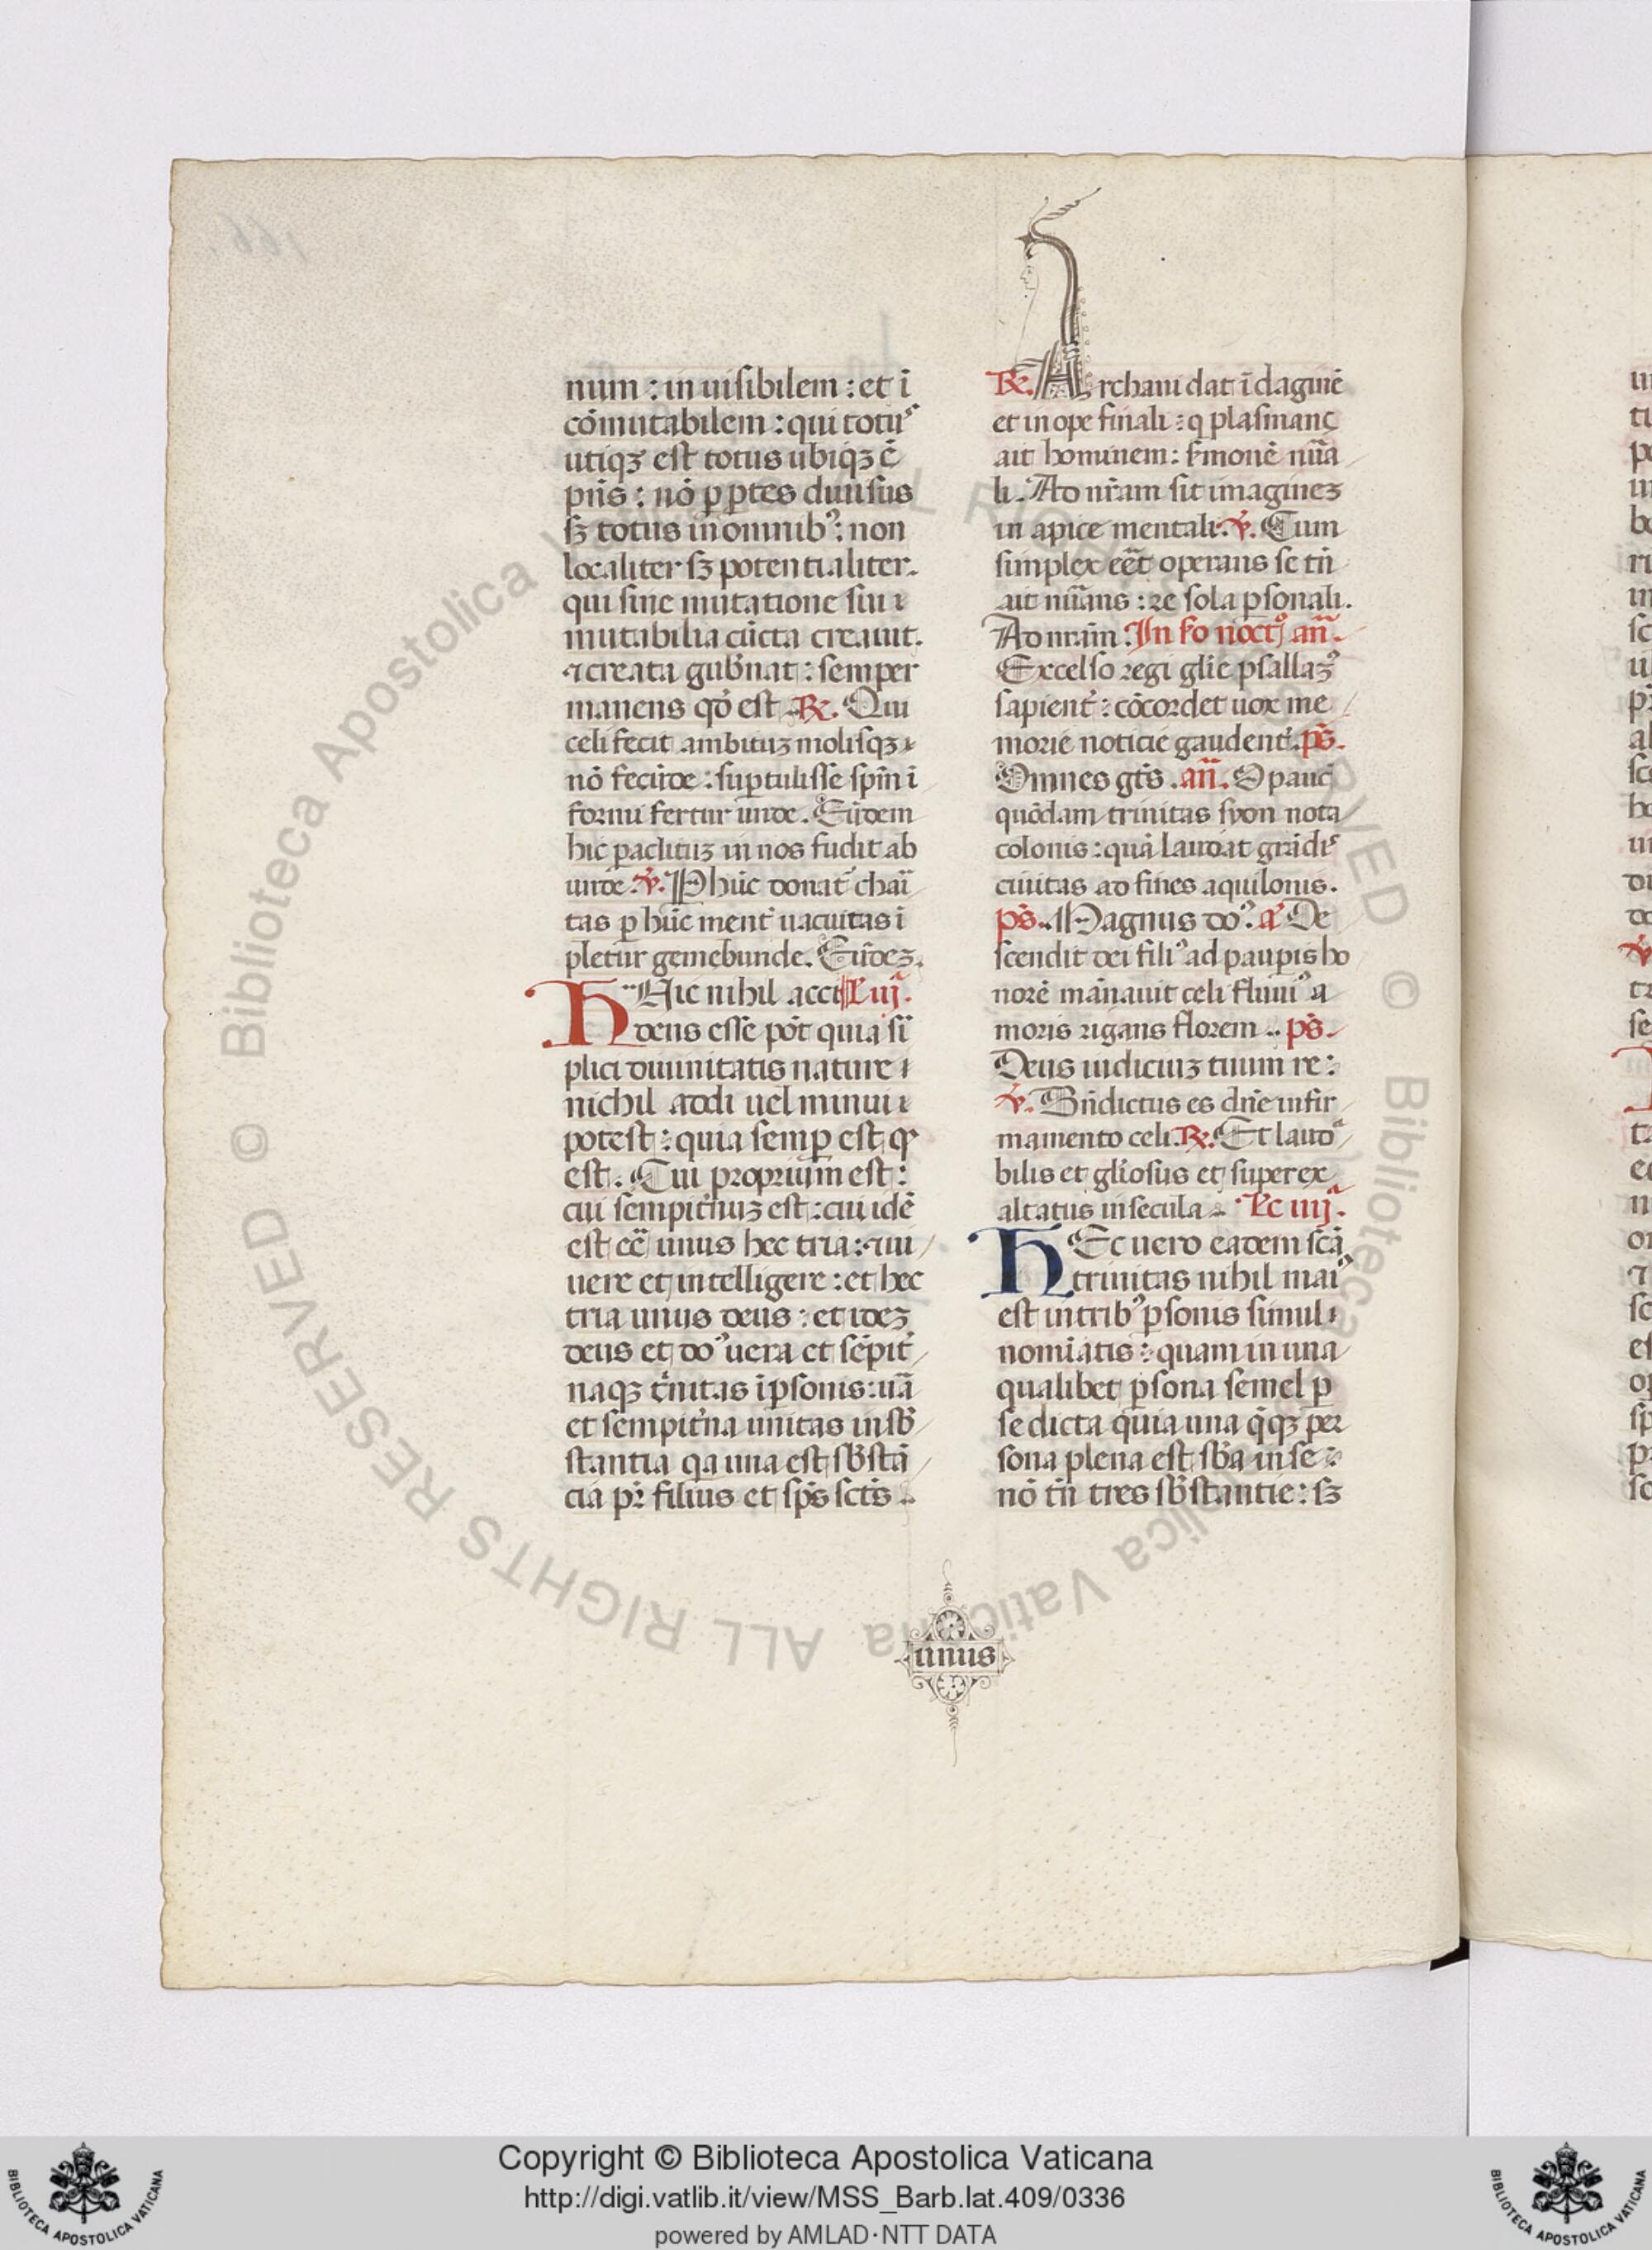 num : inuisibilem : et ī
cōmutabilem : qui totuˢ
utiqꝫ est totus ubiqꝫ ē
pn̄s : nō p ptes diuisus
sꝫ totus in omnibꝰ : non
localiter sꝫ potentialiter.
qui sine mutatione sui ɩ
mutabilia cūcta creauit.
⁊ creata gub̄nat : semper
manens qd̄ est. ℞. Qui
celi fecit ambituꝫ molisqꝫ ɩ
nō fecūde : suꝑtulisse spm̄ ī
formi fertur unde. Eiūdem
hic paclituꝫ in nos fudit ab
unde. ℣. P hūc donat̄ chaī
tas ꝑ hūc ment̄ uacuitas ī
pletur gemebunde. Eiūdeꝫ.
HAic nihil acci Lc iij.
dens esse pōt quia sī
plici diuinitatis nature ɩ
nichil addi uel minui ɩ
potest : quia semꝑ est qͩ
est. Cui proprium est :
cui sempit̄nuꝫ est : cui idē
est eē unus hec tria : uiu
uere et intelligere : et hec
tria unus deus : et ideꝫ
deus et doꝰ uera et sēpit̄
naqꝫ t̄nitas ī ꝑsonis : uā
et sempit̄na unitas in sb̄
stantia qa una est sb̄stā
cia pr̄ filius et sp̄s sct̄s.
℞. Archani dat īdaginē
et in ope finali : q plasmanc̄
ait hominem : s̄monē nūa
li. Ad nr̄am sit imagineꝫ
in apice mentali. ℣. Cum
simplex eēt operans se tn̄
ait nūans : re sola ꝑsonali.
Ad nrām. In ẜo noctꝰ an̄.
Excelso regi glīe psallaꝫ
sapient̄ : cōcordet uox me
morie noticie gaudent̄. pš.
Omnes gt̄s. an̄. O pauc̄
quōdam trinitas syon nota
colonis : quā laudat grādiˢ
ciuitas ad fines aquilonis.
pš. Magnus doꝰ. aͣ De
scendit dei filiꝰ ad pauꝑis ho
norē mānauit celi fluuiꝰ a
moris rigans florem. pš.
Deus iudiciuꝫ tuum re :
℣. Bn̄dictus es dn̄e in fir
mamento celi. ℞. Et laudͣ
bilis et glīosus et superex
altatus in secula. Lc iiij.
HEc uero eadem scā
trinitas nihil maiꝰ
est in tribꝰ ꝑsonis simul ɩ
nomīatis : quam in una
qualibet ꝑsona semel ꝑ
se dicta quia una q̄qꝫ per
sona plena est sb̄a in se :
nō tn̄ tres sb̄stantie : sꝫ
unus
Copyright © Biblioteca Apostolica Vaticana
http://digi.vatlib.it/view/MSS_Barb.lat.409/0336
powered by AMLAD·NTT DATA